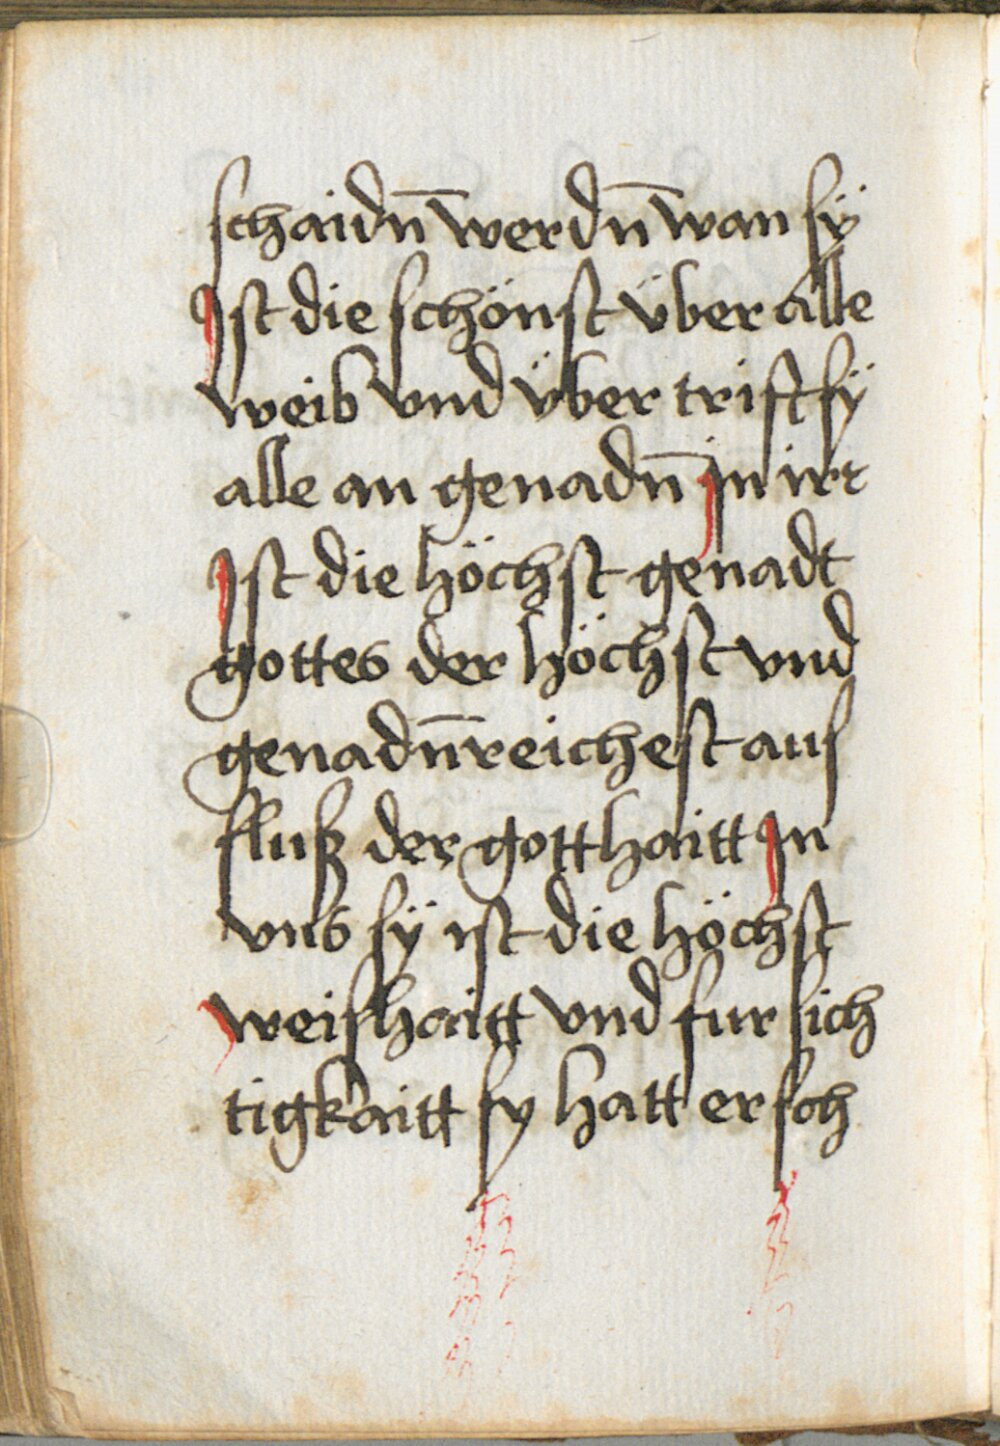 schaidn̄ werdn̄ wan sÿ
Ist die schönst über alle
weib vnd über trifft sÿ
alle an genadn̄ jn irr
Ist die höchst genadt
gottes der höchst vnd
genadn̄reichest aus
fluß der gotthaitt In
vns sÿ ist die höchst
weishaitt vnd fur sich
tigkaitt sy hatt ersch